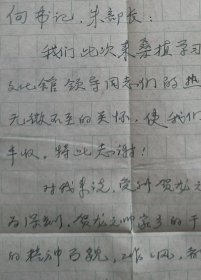 何书记、朱部长：
我们此次来桑植学习
文化馆领导同志们的热
无微不至的关怀，使我们
丰收，特此志谢！
对我来说，受到贺龙元
为深刻，贺龙元帅家乡的干
的精神面貌，工作作风，都